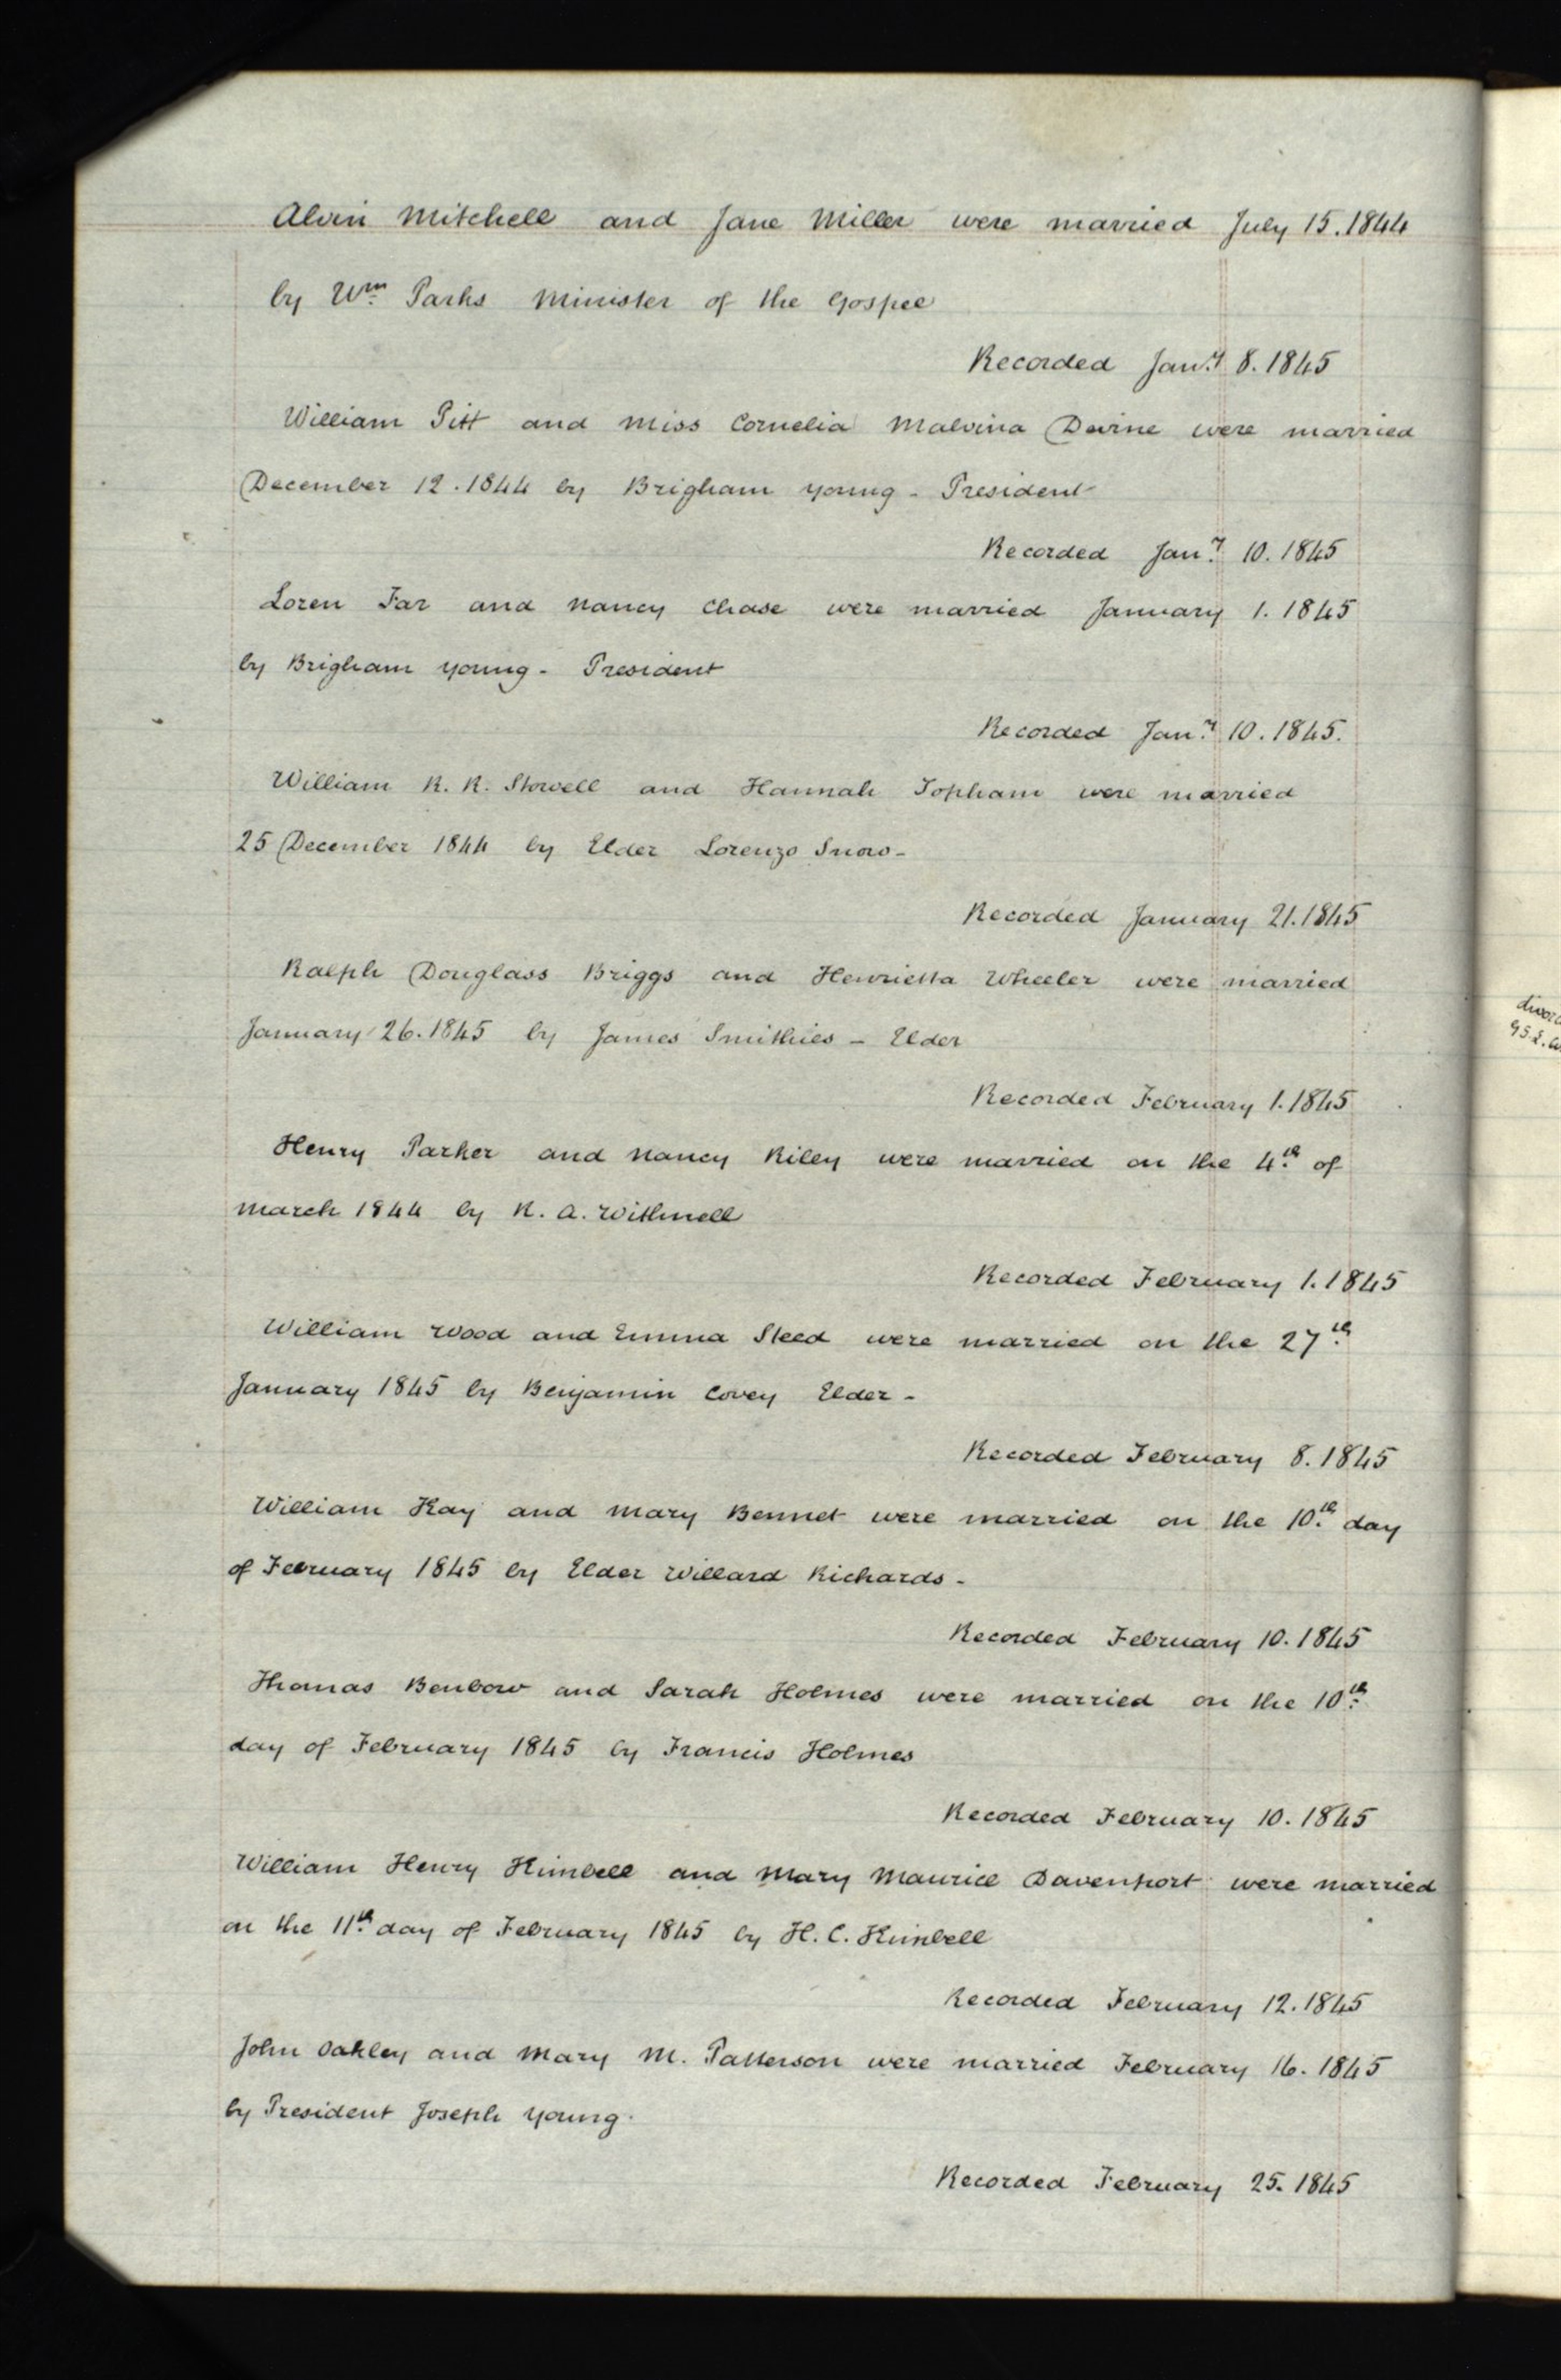 Alvin Mitchell and Jane Miller were married July 15. 1844
by Wm Parks Minister of the Gospel
Recorded Jany 8. 1845
William Pitt and Miss Cornelia Malvina Devine were married
December 12. 1844 by Brigham Young - President
Recorded Jany 10. 1845
Loren Far and Nancy Chase were married January 1. 1845
by Brigham Young - President
Recorded Jany 10. 1845.
William R. R. Stowell and Hannah Topham were married
25 December 1844 by Elder Lorenzo Snow -
Recorded January 21. 1845
Ralph Douglass Briggs and Henrietta Wheeler were married
January 26. 1845 by James Smithies - Elder
Recorded February 1. 1845
Henry Parker and Nancy Riley were married on the 4th of
March 1844 by R. A. Withnell
Recorded February 1. 1845
William Wood and Emma Steed were married on the 27th
January 1845 by Benjamin Covey Elder -
Recorded February 8. 1845
William Kay and Mary Bennet were married on the 10th day
of February 1845 by Elder Willard Richards -
Recorded February 10. 1845
Thomas Benbow and Sarah Holmes were married on the 10th
day of February 1845 by Francis Holmes
Recorded February 10. 1845
William Henry Kimbell and Mary Maurice Davenport were married
on the 11th day of February 1845 by H. C. Kimbell
Recorded February 12. 1845
John Oakley and Mary M. Patterson were married February 16. 1845
by President Joseph Young.
Recorded February 25. 1845